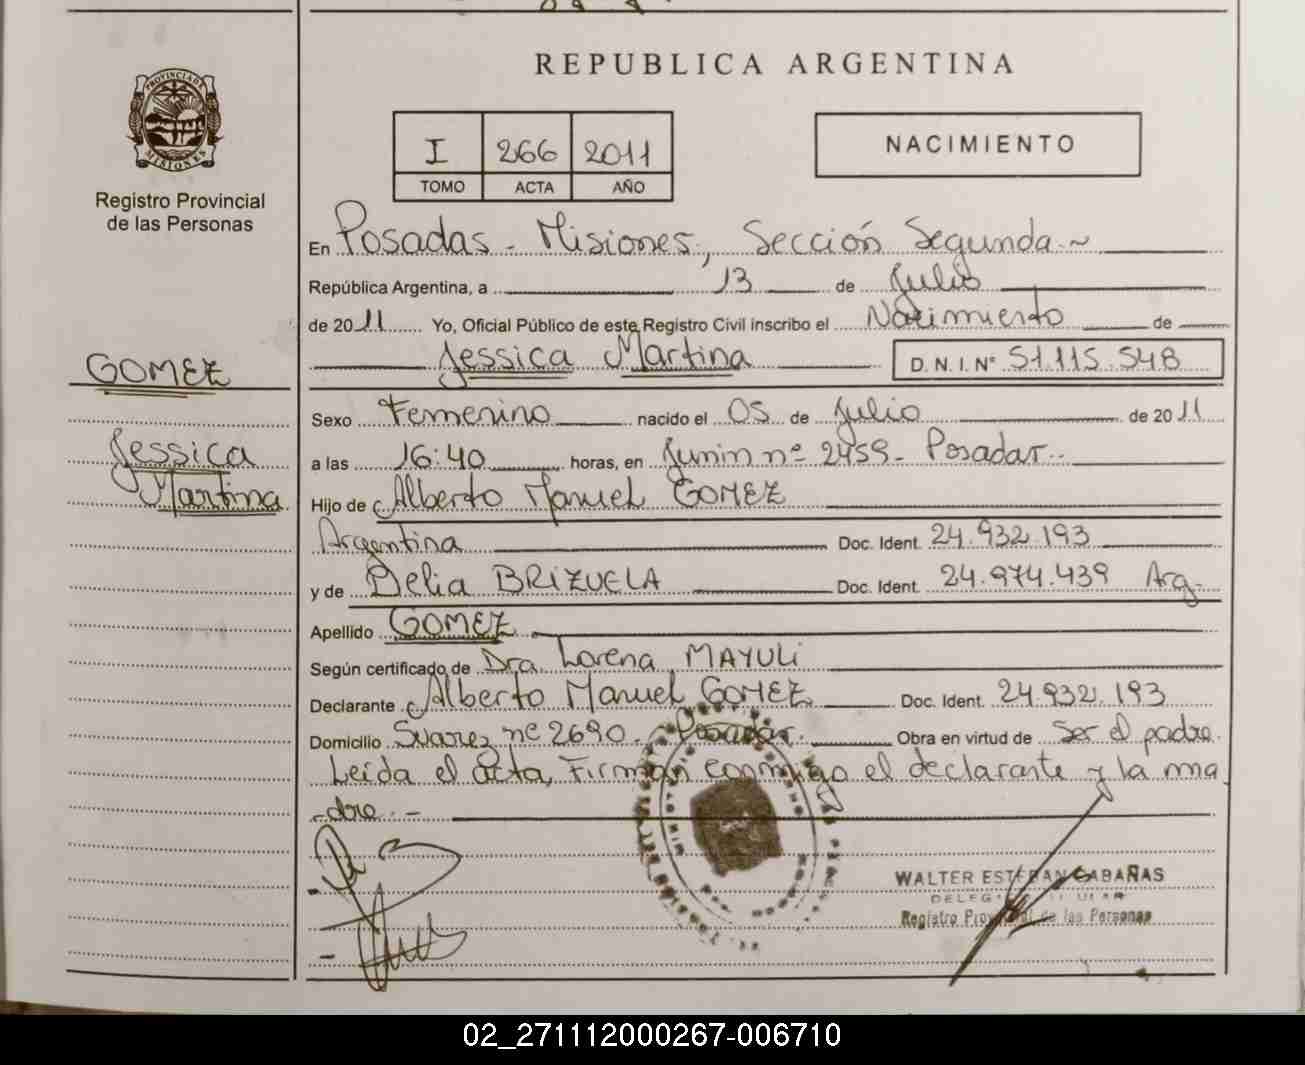 REPUBLICA ARGENTINA
PROVINCIA DE
MISIONES
Registro Provincial
de las Personas
I 266 2011
TOMO ACTA AÑO
NACIMIENTO
En Posadas - Misiones, Sección Segunda.~
República Argentina, a 13 de Julio
de 2011 Yo, Oficial Público de este Registro Civil inscribo el Nacimiento de
Jessica Martina D.N.I.Nº 51.115.548
GOMEZ
Jessica
Martina
Sexo Femenino nacido el 05 de Julio de 2011
a las 16:40 horas, en Junin nº 2459- Posadas.
Hijo de Alberto Manuel GOMEZ
Argentina Doc. Ident. 24.932.193
y de Delia BRIZUELA Doc. Ident. 24.974.439 Arg.
Apellido GOMEZ
Según certificado de Dra. Lorena MAYULi
Declarante Alberto Manuel GOMEZ Doc. Ident. 24.932.193
Domicilio Suarez nº 2690. Posadas. Obra en virtud de Ser el padre.
Leída el acta, Firman conmigo el declarante y la ma
dre.-
WALTER ESTEBAN CABAÑAS
Registro Provincial de las Personas
02_271112000267-006710